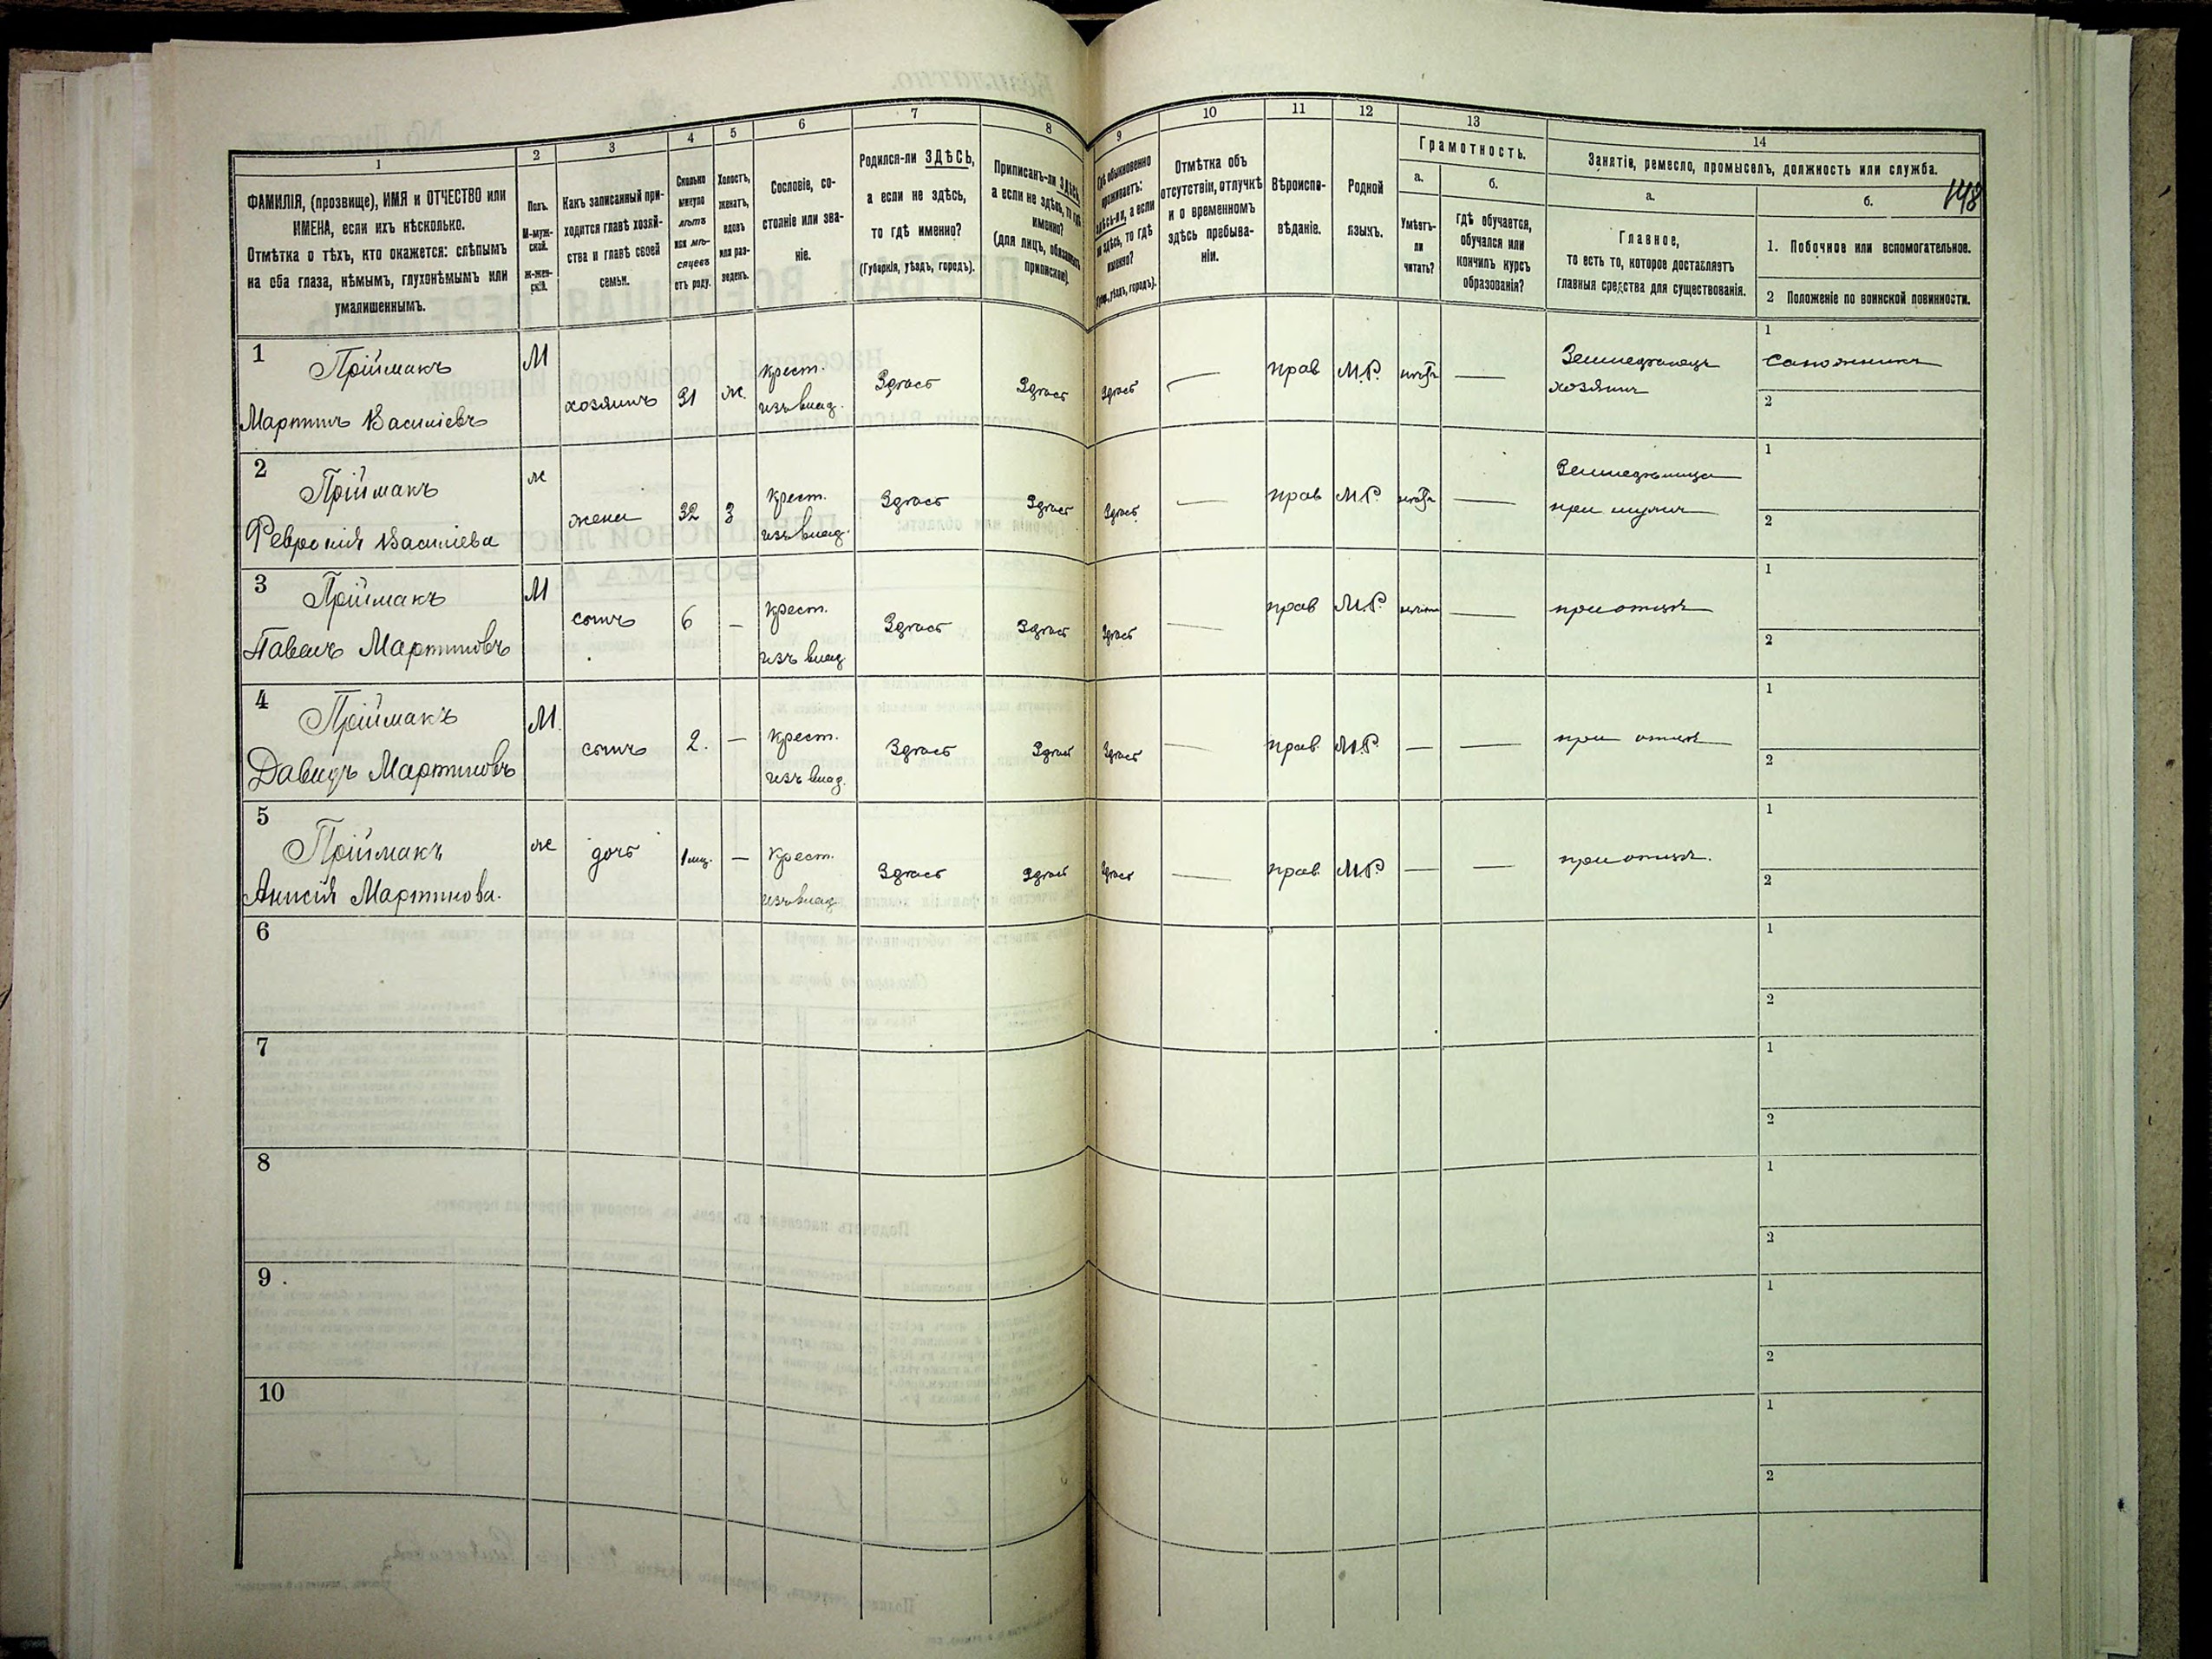 1 2 3 4 5 6 7 8 9 10 11 12 13 14
ФАМИЛІЯ, (прозвище), ИМЯ и ОТЧЕСТВО или
ИМЕНА, если ихъ нѣсколько.
Отмѣтка о тѣхъ, кто окажется: слѣпымъ
на оба глаза, нѣмымъ, глухонѣмымъ или
умалишеннымъ.
Полъ.
М-муж-
ской.
Ж-жен-
скій.
Какъ записанный при-
ходится главѣ хозяй-
ства и главѣ своей
семьи.
Сколько
минуло
лѣтъ
или мѣ-
сяцевъ
отъ роду.
Холостъ,
женатъ,
вдовъ
или раз-
веденъ.
Сословіе, со-
стояніе или зва-
ніе.
Родился-ли ЗДѢСЬ,
а если не здѣсь,
то гдѣ именно?
(Губернія, уѣздъ, городъ).
Приписанъ-ли ЗДѢСЬ,
а если не здѣсь, то гдѣ
именно?
(для лицъ, обязанныхъ
припискою).
Гдѣ обыкновенно
проживаетъ:
здѣсь-ли, а если
не здѣсь, то гдѣ
именно?
уѣздъ, городъ).
Отмѣтка объ
отсутствіи, отлучкѣ
и о временномъ
здѣсь пребыва-
ніи.
Вѣроиспо-
вѣданіе.
Родной
языкъ.
Грамотность.
а.
Умѣетъ-
ли
читать?
б.
гдѣ обучается,
обучался или
кончилъ курсъ
образованія?
Занятіе, ремесло, промыселъ, должность или служба.
148
а.
Главное,
то есть то, которое доставляетъ
главныя средства для существованія.
б.
1. Побочное или вспомогательное.
2 Положеніе по воинской повинности.
1 Пріймакъ М 1
Мартинъ Василіевъ хозяинъ 31 ж. крест. Здѣсь Здѣсь Здѣсь — прав М.Р. — Земледѣлецъ сапожникъ
изъ влад. хозяинъ 2
2 Пріймакъ ж 1
Февронія Василіева жена 32 З крест. Здѣсь Здѣсь Здѣсь — прав М.Р. — Земледѣлица
изъ влад. при мужѣ 2
3 Пріймакъ М 1
Павелъ Мартиновъ сынъ 6 — крест. Здѣсь Здѣсь Здѣсь — прав М.Р. — при отцѣ
изъ влад 2
4 Пріймакъ М. 1
Давидъ Мартиновъ сынъ 2. — крест. Здѣсь Здѣсь Здѣсь — прав. М.Р. — — при отцѣ
изъ влад. 2
5 Пріймакъ ж 1
Анисія Мартинова. дочь 1 мц. — крест. Здѣсь Здѣсь Здѣсь — прав. М.Р. — — при отцѣ.
изъ влад 2
6 1
2
7 1
2
8 1
2
9 1
2
10 1
2